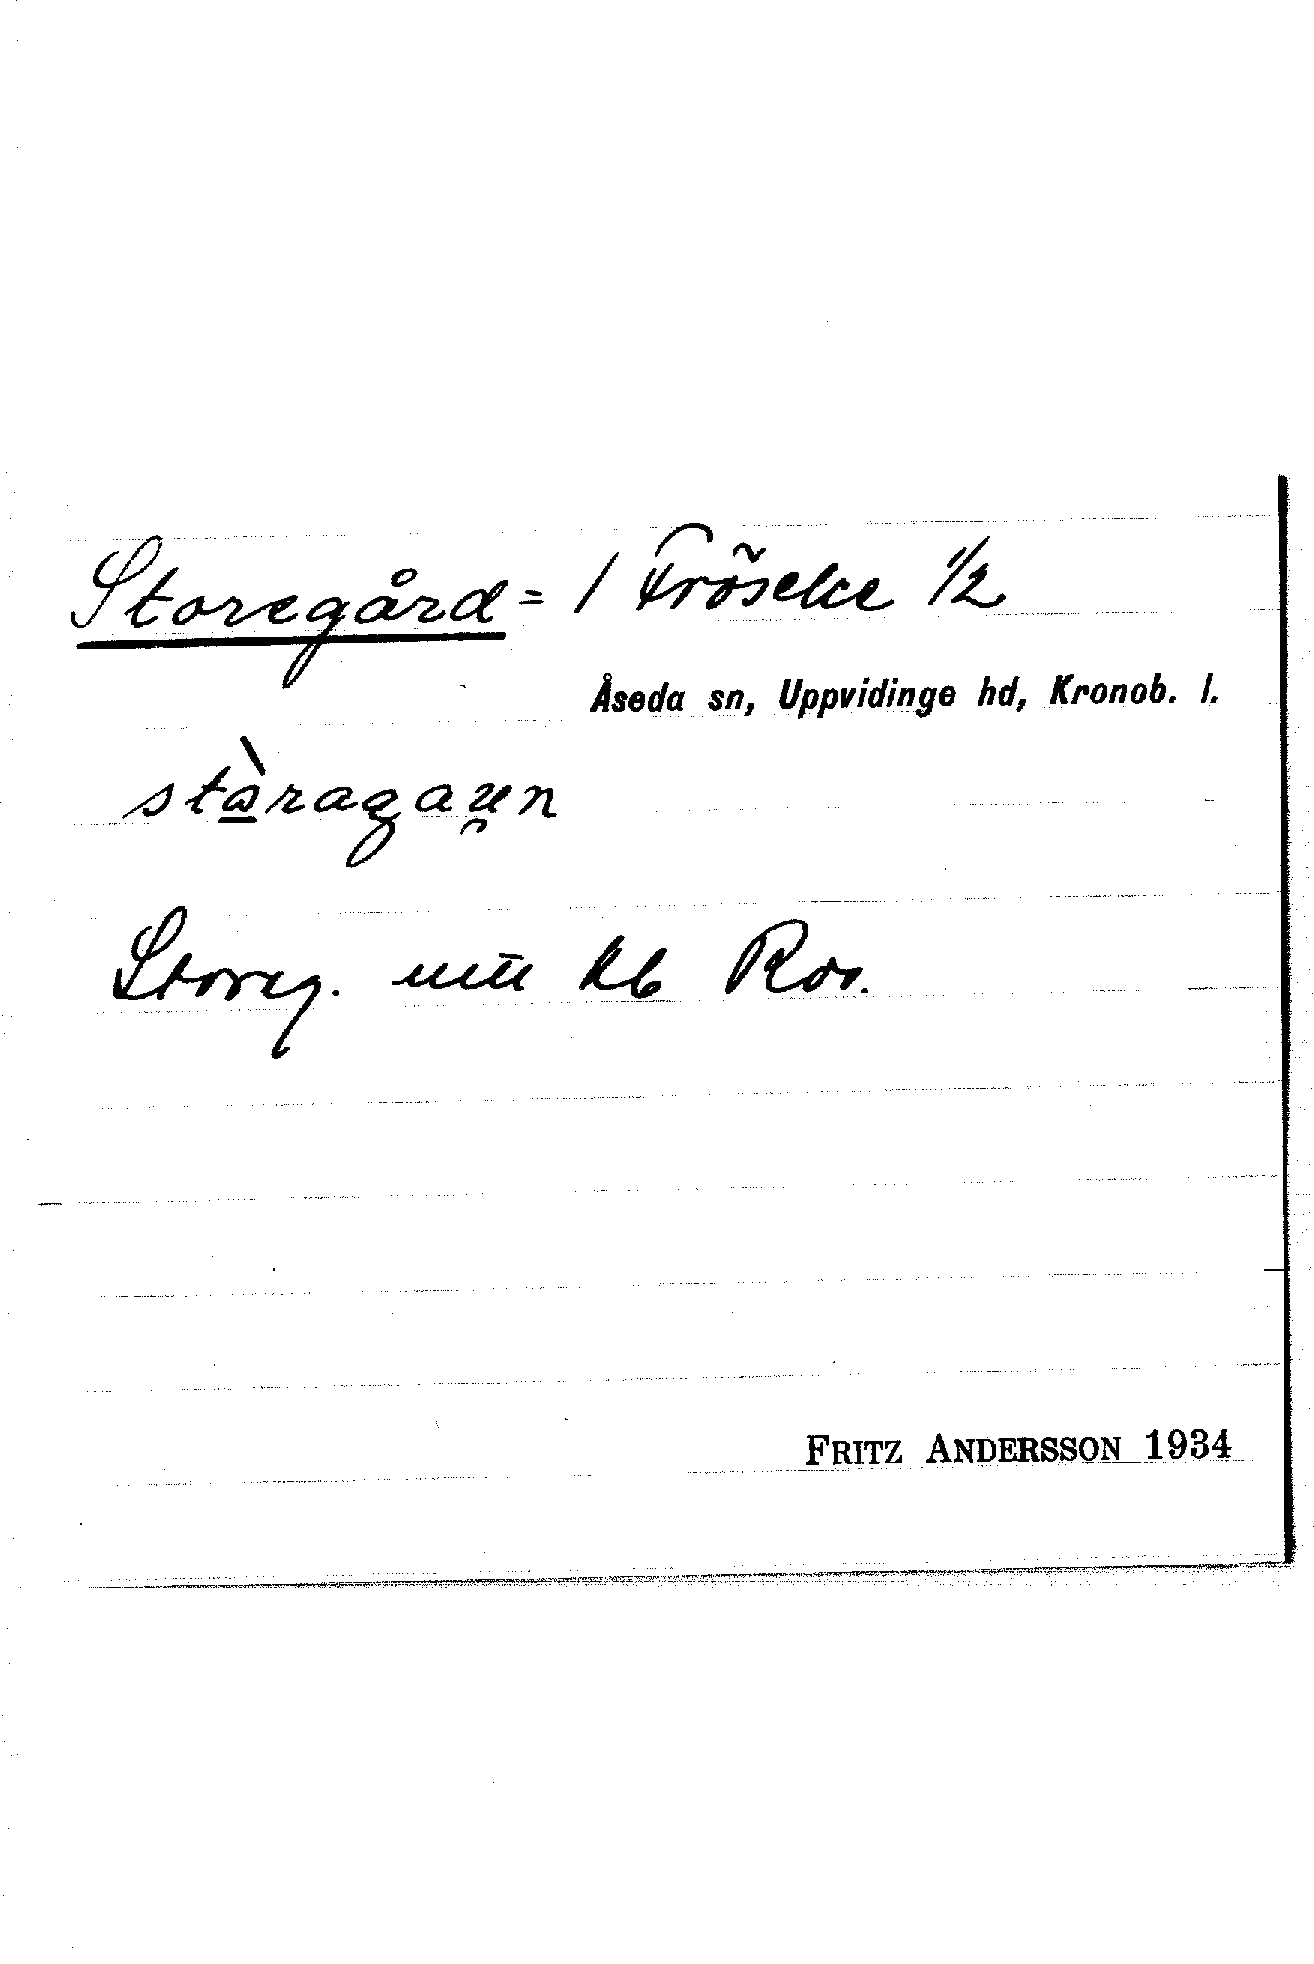 Storegård = 1 Fröseke 1/2
Åseda sn, Uppvidinge hd, Kronob. l.
stàragau̯n
Storeg. uttl kb Ror.
FRITZ ANDERSSON 1934